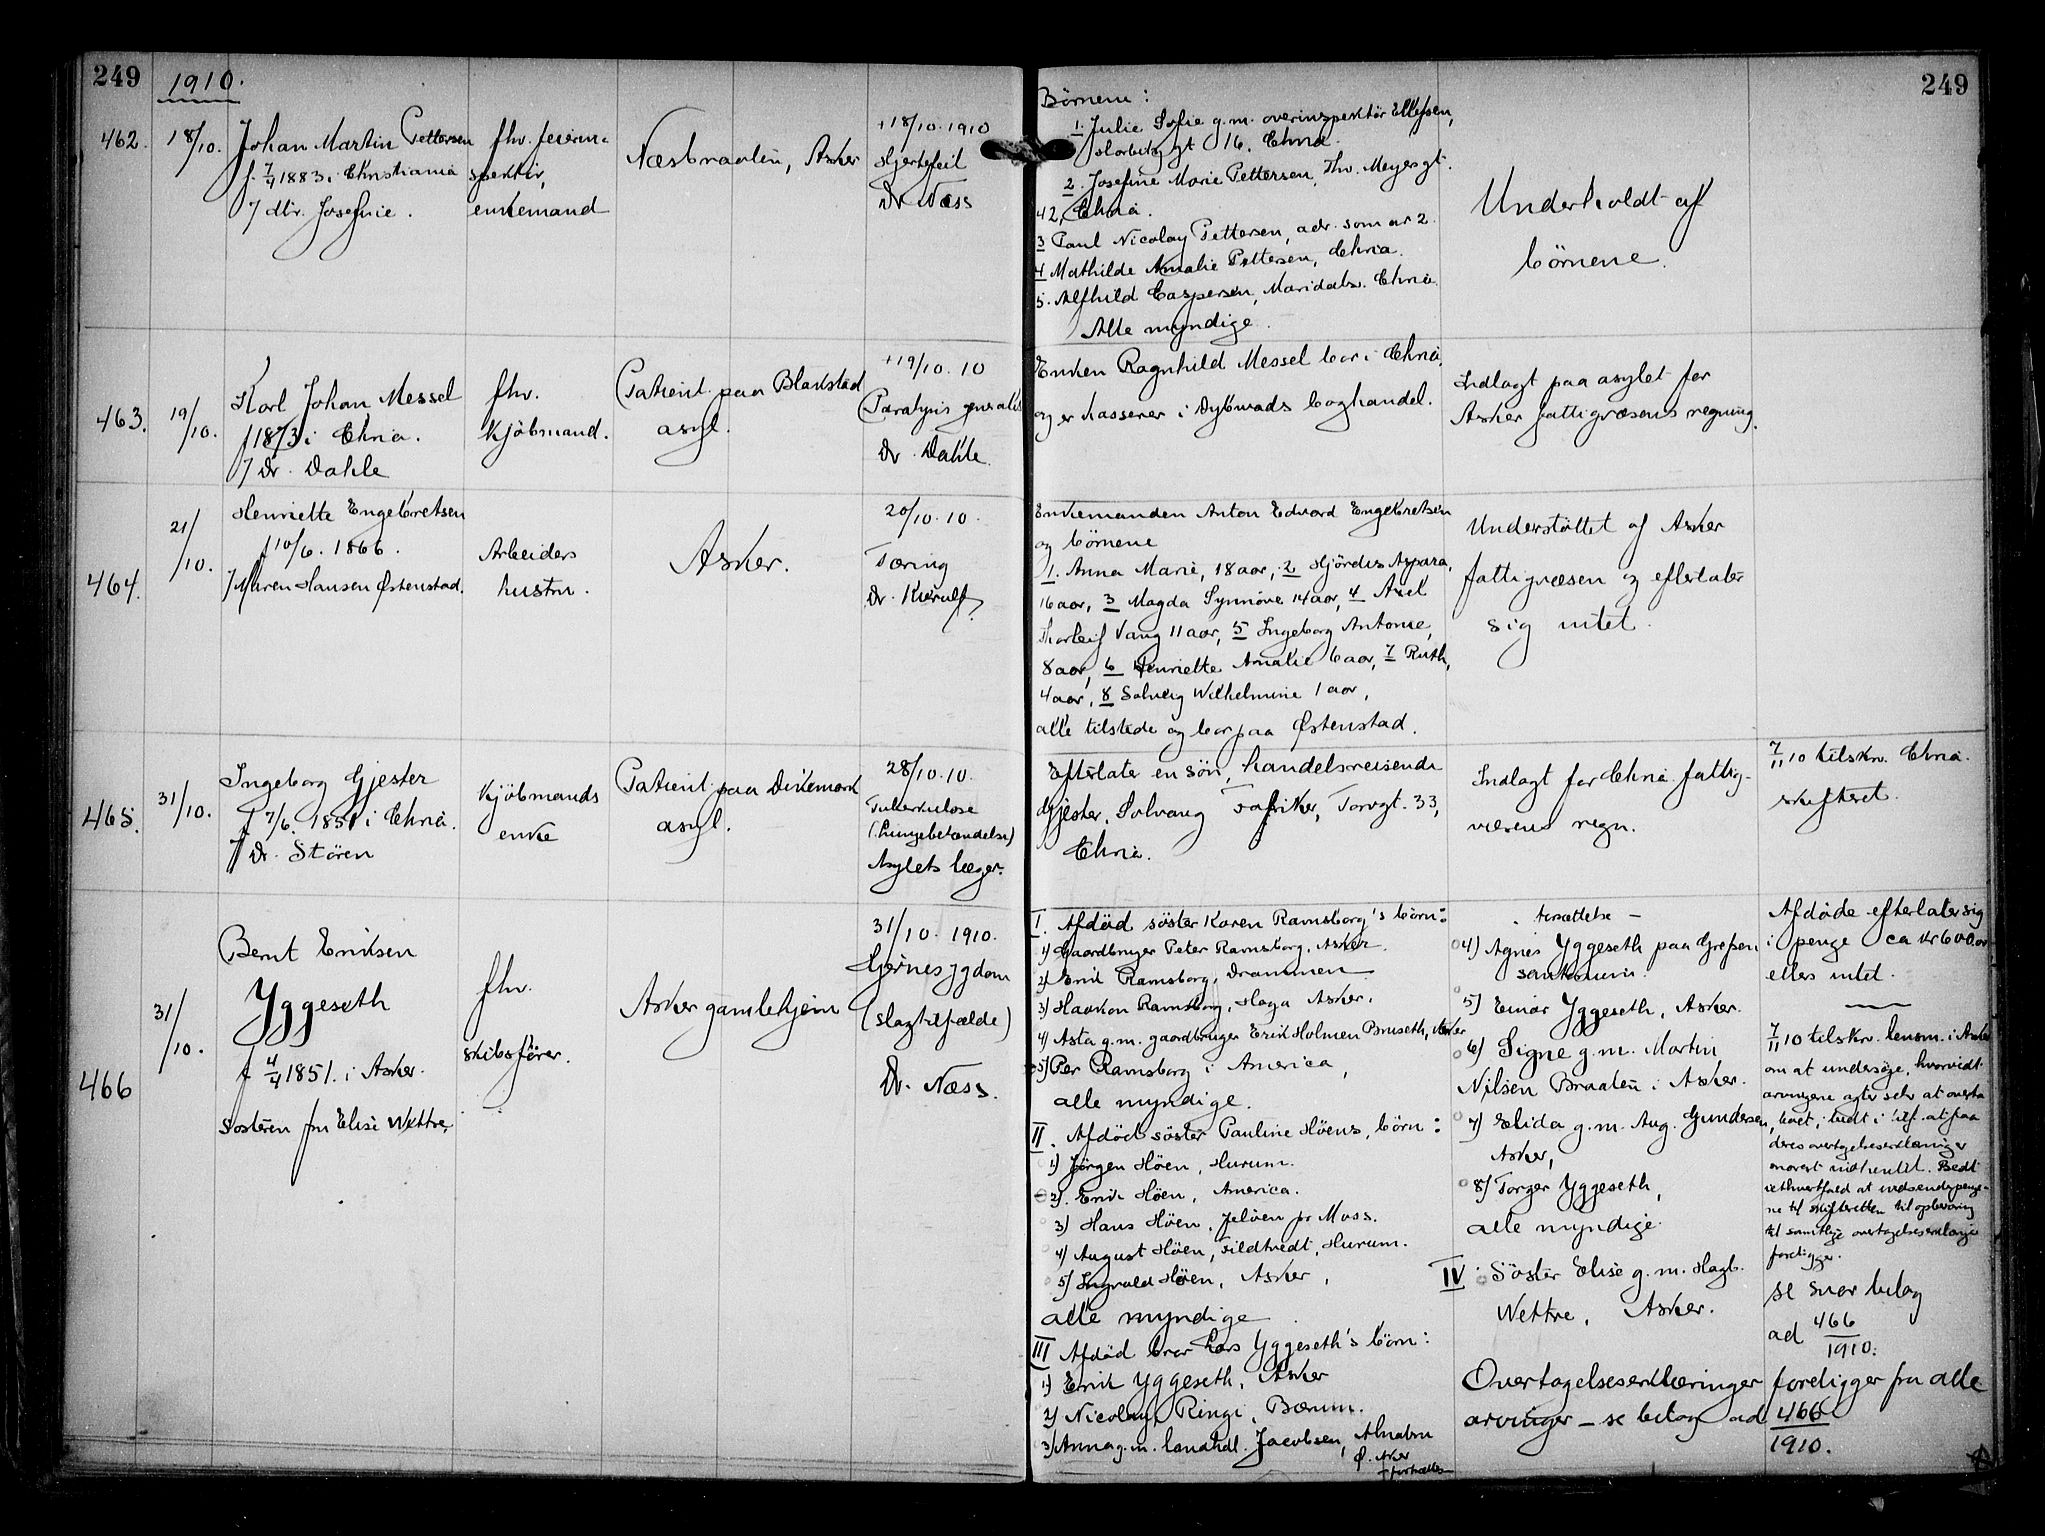 249
1910.
249
462.
18/10.
Johan Martin Pettersen
f. 7/4 1883 i Christiania
/ dtr. Josefine.
fhv. feierin-
spektør,
enkemand
Næsbraaten, Asker
+18/10. 1910
Hjertefeil
Dr. Næss
Børnene:
1. Julie Sofie g.m. overinspektør Ellefsen,
gt 16, Chria.
2. Josefine Marie Pettersen, Thv. Meyersgt.
42, Chria.
3 Paul Nicolay Pettersen, adr. som nr 2.
4 Mathilde Amalie Pettersen, Chria.
5. Alfhild Caspersen, Maridalsv. Chria.
Alle myndige.
Underholdt af
børnene.
463.
19/10.
Karl Johan Messel
f 1873 i Chria.
/ Dr. Dahle
fhv.
Kjøbmand.
Patient paa Blakstad
asyl.
+19/10. 10
Paralysis generalis
Dr. Dahle.
Enken Ragnhild Messel bor i Chria,
og er kasserer i Dybwads boghandel.
Indlagt paa asylet for
Asker fattigvæsens regning.
464.
21/10.
Henriette Engebretsen
f 10/6. 1866.
/ Maren Hansen Østenstad.
Arbeiders
hustru.
Asker.
20/10. 10.
Tæring
Dr. Kierulf.
Enkemanden Anton Edvard Engebretsen
og børnene
1. Anna Marie, 18 aar, 2 Hjørdis Aspara,
16 aar, 3 Magda Synnøve 14 aar, 4 Axel
Thorleif Vang 11 aar, 5 Ingeborg Antonie,
8 aar, 6 Henriette Amalie 6 aar, 7 Ruth,
4 aar, 8 Solveig Wilhelmine 1 aar,
alle tilstede og bor paa Østenstad.
Understøttet af Asker
fattigvæsen og efterlater
sig intet.
465.
31/10.
Ingeborg Gjester
f 7/6. 1851 i Chria.
/ Dr. Støren
Kjøbmands
enke
Patient paa Dikemark
asyl.
28/10. 10.
Tuberkulose
(Lungebetændelse)
Asylets læger.
Efterlater en søn, handelsreisende
Gjester, Solvang Fabriker, Torvgt. 33,
Chria.
Indlagt for Chria fattig-
væsens regn.
7/11 10 tilskr. Chria.
skifteret.
466
31/10.
Bernt Eriksen
Yggeseth
f 4/4 1851. i Asker.
Søsteren fru Elise Wettre,
fhv.
skibsfører.
Asker gamlehjem
31/10. 1910.
Hjernesygdom
(slagtilfælde)
Dr. Næss.
I. Afdød søster Karen Ramsborg's børn:
1) Gaardbruger Peter Ramsborg, Asker.
2) Erik Ramsborg, Drammen
3) Haakon Ramsborg, Haga Asker.
4) Asta g.m. gaardbruger Erik Holmen Bruseth, Asker
5) Per Ramsborg i America,
alle myndige.
II. Afdød søster Pauline Høens, børn:
1) Jørgen Høen, Hurum.
2). Erik Høen, America.
3) Hans Høen, Jeløen pr Moss.
4) August Høen, Tildtvedt, Hurum.
5) Ingvald Høen, Asker,
alle myndige
III Afdød bror Lars Yggeseth's børn:
1) Erik Yggeseth, Asker
2) Nicolay Ringi, Bærum.
3) Anna g.m. landhdl. Jacobsen, Alnabru
Ø. Aker
- fortsættes
- fortsættelse -
4) Agnes Yggeseth paa Grefsen
sanatorium.
5) Einar Yggeseth, Asker.
6) Signe g.m. Martin
Nilsen Braaten i Asker.
7) Elida g.m. Aug. Gundersen,
Asker,
8) Torger Yggeseth,
alle myndige.
IV. Søster Elise g.m. Hagb.
Wettre, Asker.
Afdøde efterlater sig
i penge ca kr 600.00
ellers intet.
7/11 10 tilskr. lensm. i Asker
om at undersøge, hvorvidt
arvingene agter selv at overta
boet, bedt i tilf. at faa
deres overtagelseserklæringer
snarest indhentet. Bedt
iethvertfald at indsende penge-
ne til skifteretten til opbevaring
til samtlige overtagelseserklæringer
foreligger.
se svar bilag
ad 466/1910.
Overtagelseserklæringer foreligger fra alle
arvinger - se bilag ad 466/1910.